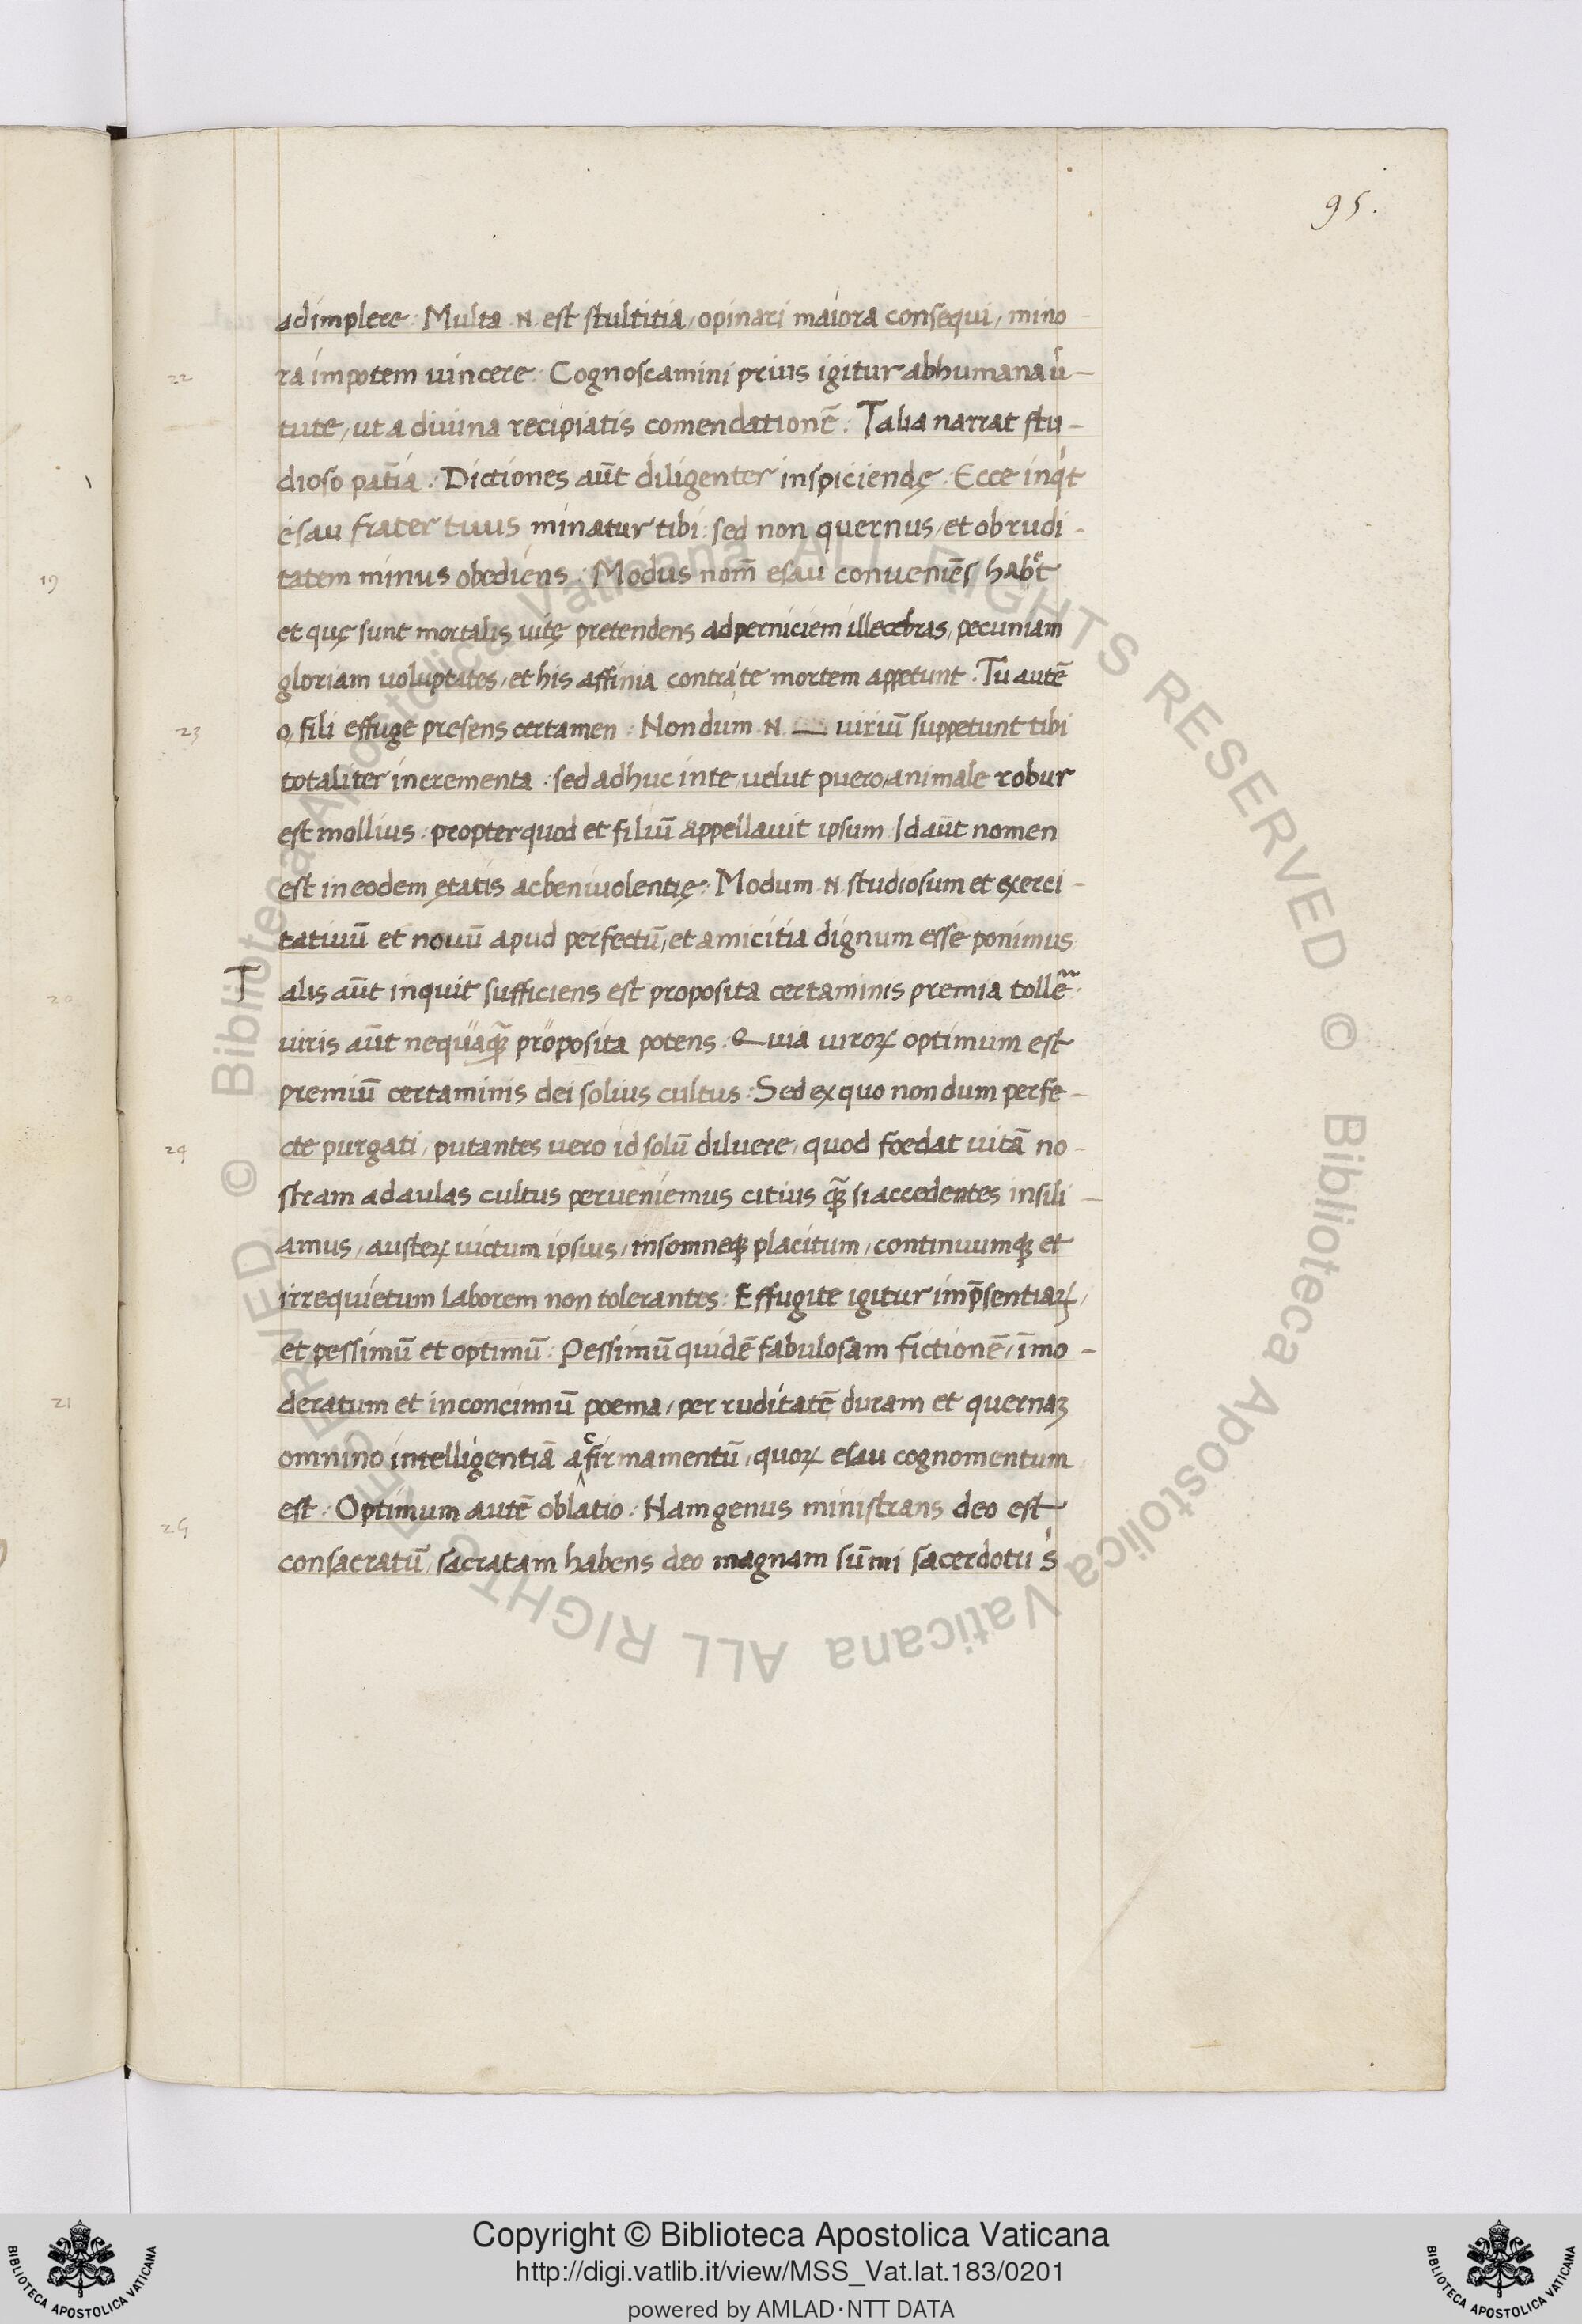 95.
adimplere : Multa .N. est stultitia, opinari maiora consequi, mino
22
ra impotem vincere : Cognoscamini prius igitur ab humana ũ-
tute, ut a divina recipiatis comendationẽ. Talia narrat stu-
dioso patĩa : Dictiones aũt diligenter inspiciendę : Ecce inqt
esau frater tuus minatur tibi : sed non quernus, et ob rudi-
19
tatem minus obediens : Modus nom̃ esau conveniẽs habet
et quę sunt mortalis vitę pretendens ad perniciem illecebras, pecuniam
gloriam voluptates, et his affinia contra te mortem appetunt. Tu autẽ
23
o, fili effuge presens certamen : Nondum .N. viriũ suppetunt tibi
totaliter incrementa : sed adhuc in te, velut puero, animale robur
est mollius : propter quod et filiũ appellavit ipsum. Id aũt nomen
est in eodem ętatis ac benivolentię : Modum .N. studiosum et exerci-
tativũ et novũ apud perfectũ, et amicitia dignum esse ponimus
20
Talis aũt inquit sufficiens est proposita certaminis premia tollẽ.
viris aũt nequaꝙ̃ proposita potens. Quia viroꝝ optimum est
premiũ certaminis dei solius cultus : Sed ex quo nondum perfe-
24
cte purgati, putantes vero id solũ diluere, quod foedat vitã no-
stram ad aulas cultus perveniemus citius ꝙ̃ si accedentes insili-
amus, austeꝝ victum ipsius, insomneqꝫ placitum, continuumqꝫ et
irrequietum laborem non tolerantes : Effugite igitur imp̃sentiaꝝ,
et pessimũ et optimũ : Pessimũ quidẽ fabulosam fictionẽ, ĩmo-
21
deratum et inconcinnũ poema, per ruditatẽ duram et quernaꝫ
omnino intelligentiã affirmamentũ, quoꝝ esau cognomentum
est : Optimum autẽ oblatio : Nam genus ministrans deo est
25
consacratũ, sacratam habens deo magnam sũmi sacerdotii s
Copyright © Biblioteca Apostolica Vaticana
http://digi.vatlib.it/view/MSS_Vat.lat.183/0201
powered by AMLAD·NTT DATA
BIBLIOTECA APOSTOLICA VATICANA
BIBLIOTECA APOSTOLICA VATICANA
© Biblioteca Apostolica Vaticana ALL RIGHTS RESERVED © Biblioteca Apostolica Vaticana ALL RIGHTS RESERVED